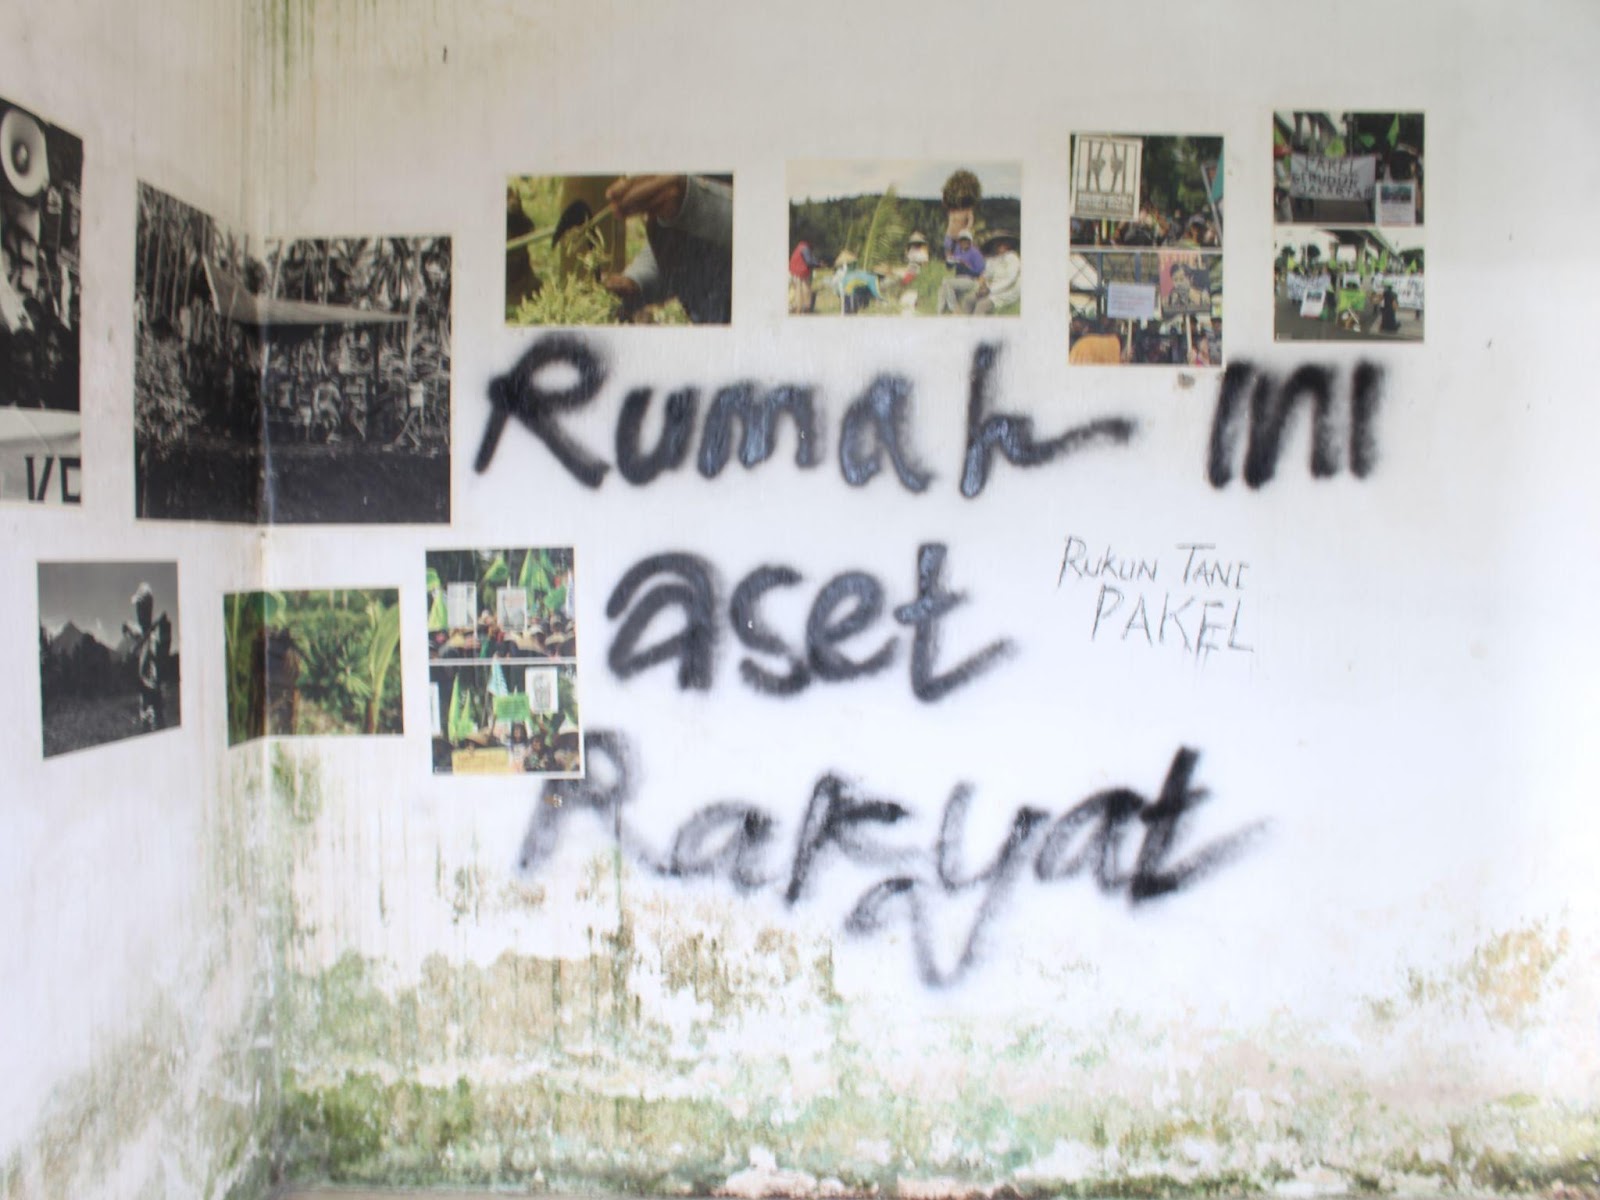 Rumah INI
aset
Rakyat
RUKUN TANI
PAKEL